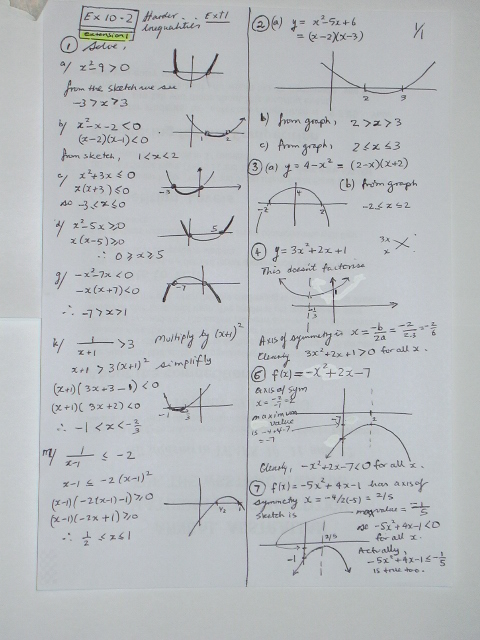 Ex 10-2 Harder Inequalities Ext 1
extension 1
① Solve,
a/ x²-9>0
from the sketch we see
-3>x>3
b/ x²-x-2<0
(x-2)(x-1)<0
1 2
from sketch, 1<x<2
c/ x²+3x≤0
x(x+3)≤0
-3
so -3≤x≤0
d/ x²-5x≥0
x(x-5)≥0
5
∴ 0≥x≥5
g/ -x²-7x<0
-x(x+7)<0
-7
∴ -7>x>1
k/ 1/(x+1) >3 multiply by (x+1)²
x+1 > 3(x+1)² simplifly
(x+1)(3x+3-1)<0
(x+1)(3x+2)<0
-1
∴ -1<x<-2/3
m/ 1/(x-1) ≤ -2
x-1 ≤ -2(x-1)²
(x-1)(-2(x-1)-1)≥0
(x-1)(-2x+1)≥0
½ 1
∴ 1/2 ≤x≤1
② (a) y = x²-5x+6
= (x-2)(x-3)
1/1
2 3
b) from graph, 2>x>3
c) from graph, 2≤x≤3
③ (a) y=4-x² = (2-x)(x+2)
4
-2 2
(b) from graph
-2≤x≤2
④ y=3x²+2x+1
3x
x
This doesn't factorise
1
-1/3
Axis of symmetry is x = -b/2a = -2/2.3 = -2/6
Clearly 3x²+2x+1>0 for all x.
⑥ f(x)=-x²+2x-7
axis of sym
maximum value
is -4+4-7
=-7
-7
Clearly, -x²+2x-7<0 for all x.
⑦ f(x)=-5x²+4x-1 has axis of
symmetry x = -4/2(-5) = 2/5
sketch is
max value = -1/5
2/5
-1
so -5x²+4x-1<0
for all x.
Actually,
-5x²+4x-1≤-1/5
is true too.